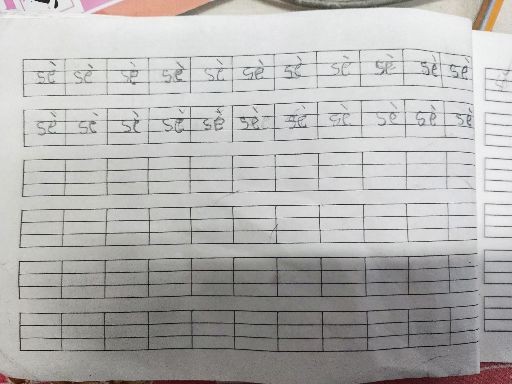 sè sè sè sè sè sè sè sè sè sè sè
sè sè sè sè sè sè sè sè sè sè sè